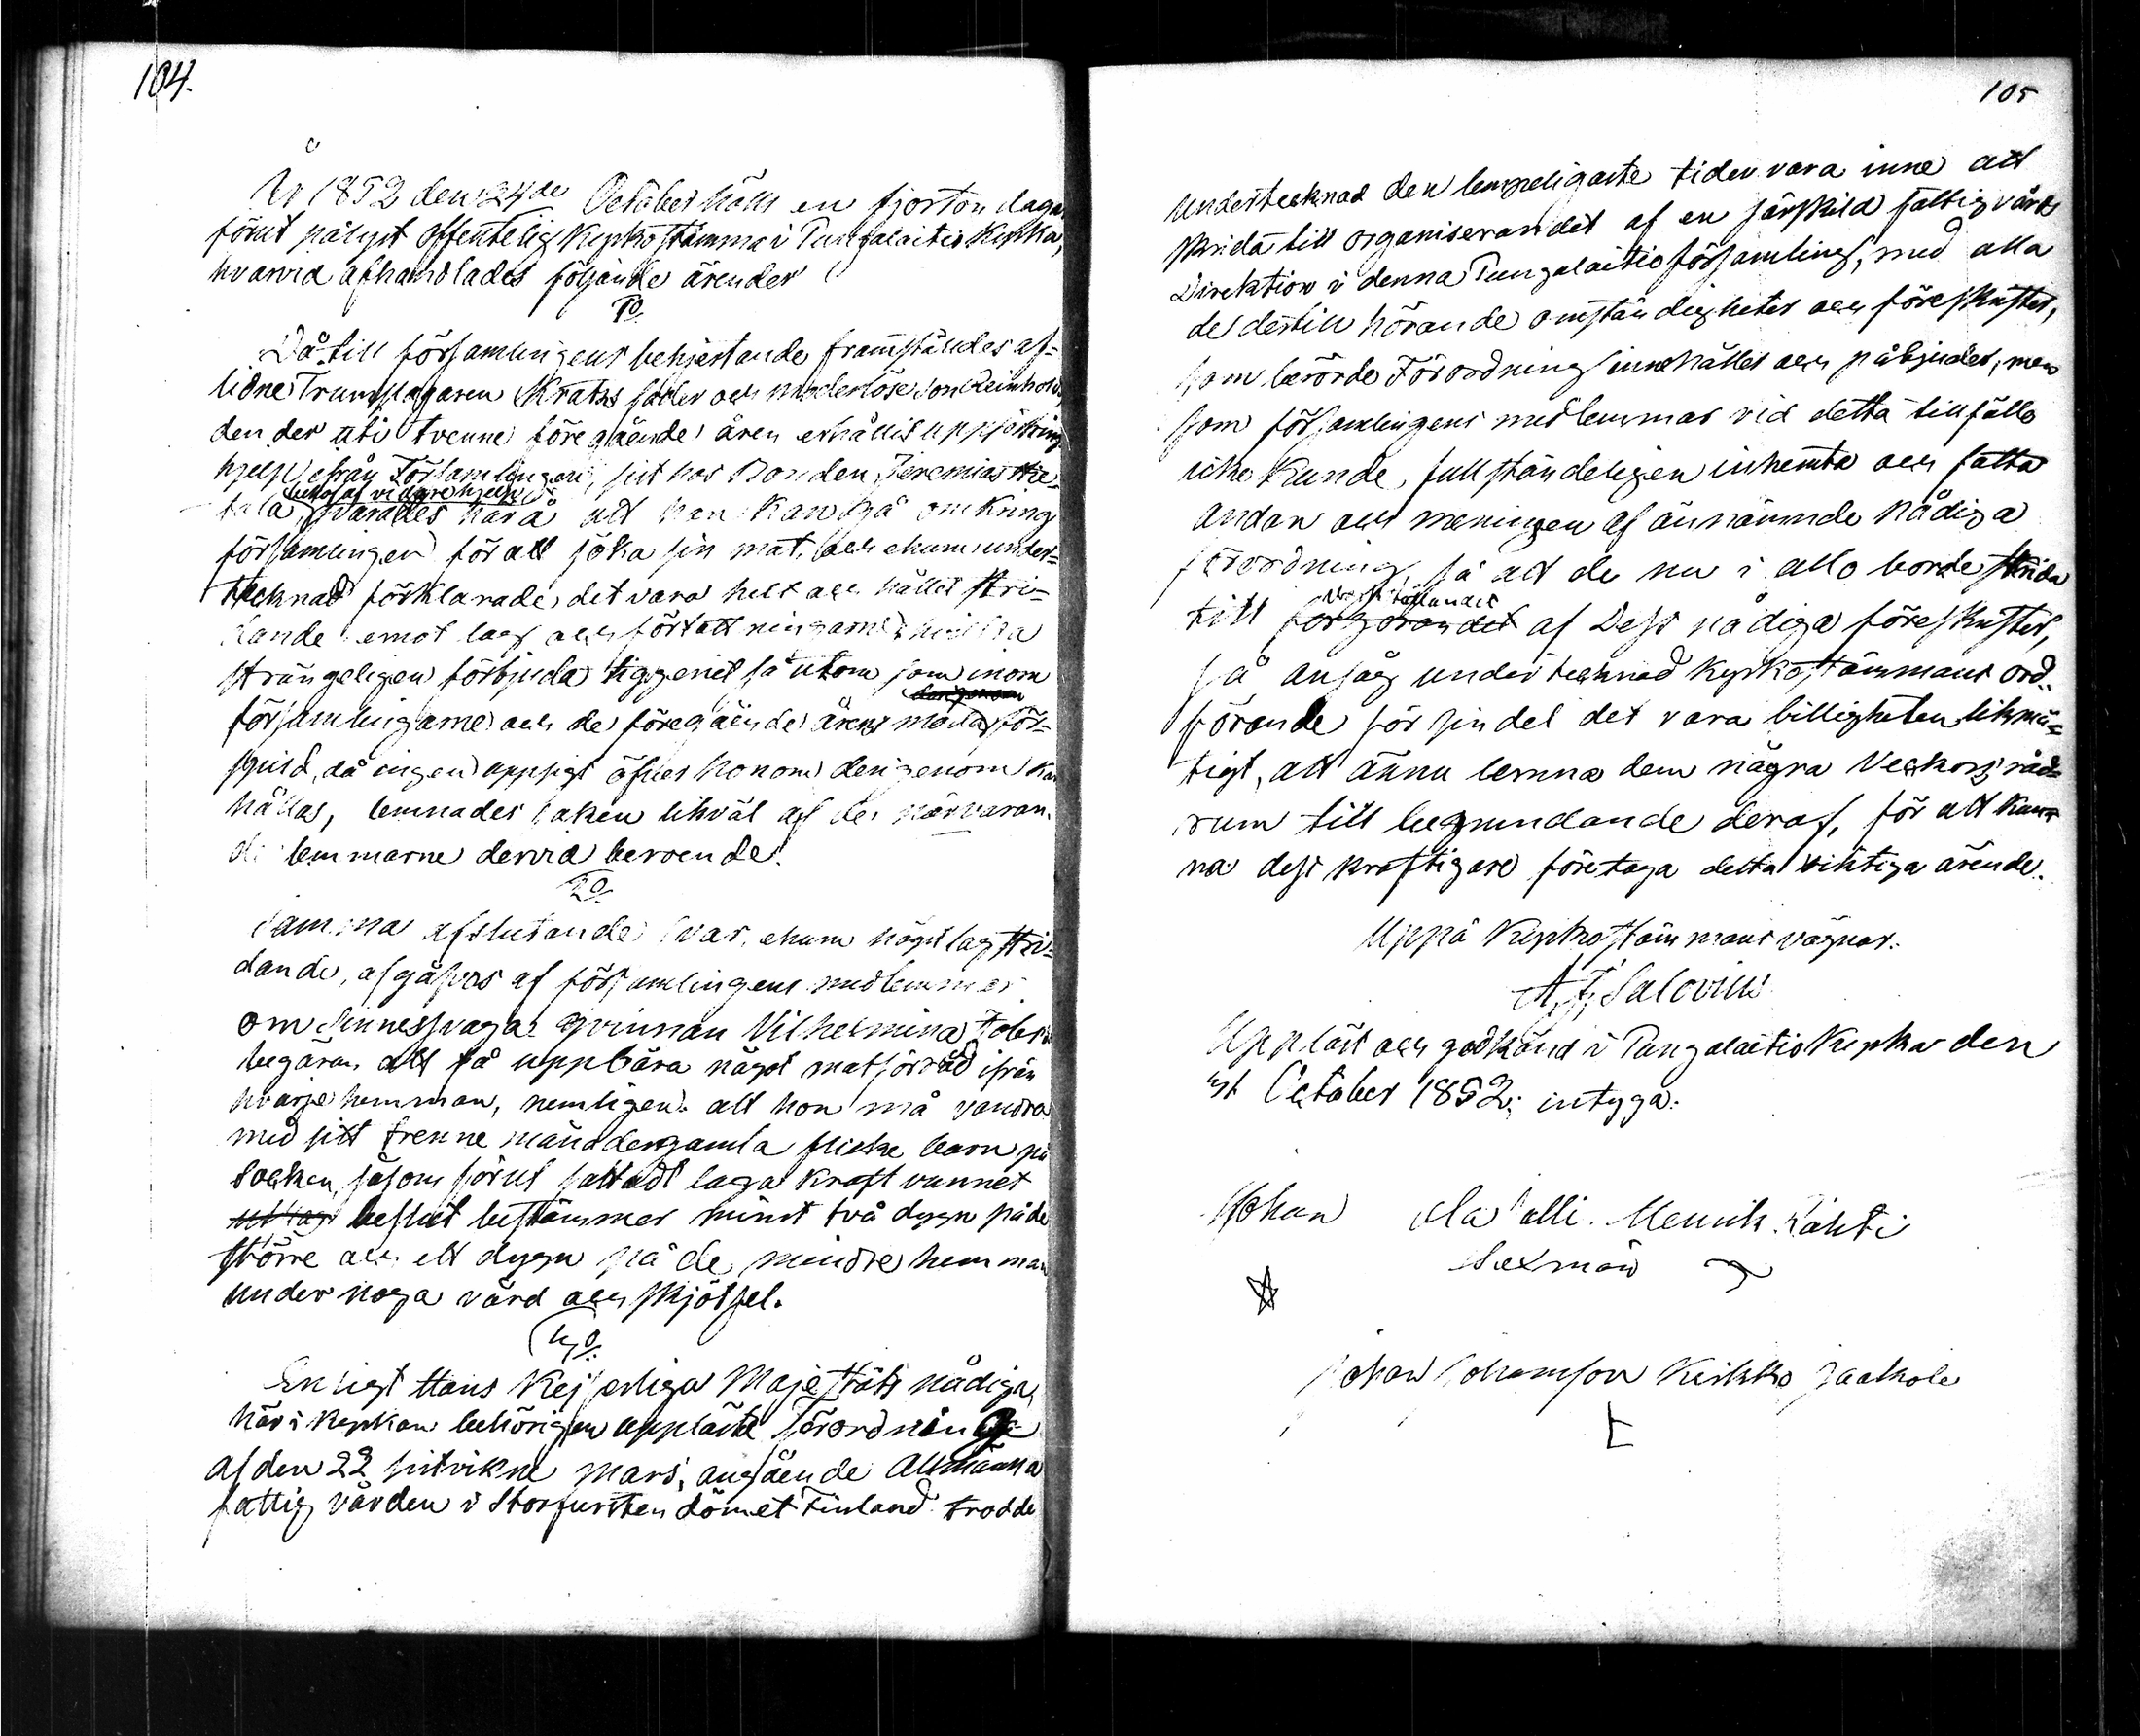 104.
År 1852 den 24de October hölls en fjorton dagar
förut pålyst offentelig Kyrkostämma i Pungalaitio Kyrka,
hvarvid afhandlades följande ärender
1o.
Då till församlingens behjertande framstäldes af-
lidne Trumslagaren Kratz's fader och moderlöse son Reinhold,
den der uti tvenne föregående åren erhållit uppfostrings
hjelp ifrån Församlingen, sist hos Bonden Jeremias
behof af vidare hjelp
svarades härå att han kan gå omkring
församlingen för att söka sin mat, och ehuru under-
tecknad förklarade det vara helt och hållet stri-
dande emot lag och författningarne, hvilka
strängeligen förbjuda tiggeriet så utom som inom
församlingarne och de föregående årens för-
spild, då ingen uppsigt öfver honom derigenom kan
hållas, lemnades saken likväl af de närvaran-
de lemmarne dervid beroende.
2o.
Samma afslutande svar, ehuru högst lagstri-
dande, afgåfvos af församlingens medlemmer
om sinnessvaga qvinnan Vilhelmina
begäran att få uppbära något matförråd ifrån
hvarje hemman, nemligen att hon må vandra
med sitt trenne månader gamla flicke barn på
Socken, såsom förut fattadt laga kraft vunnet
beslut bestämmer minst två dygn på de
större och ett dygn på de mindre hemman
under noga vård och skjötsel.
3o.
Enligt Hans Kejserliga Majestäts nådiga,
här i Kyrkan behörigen uppläste Förordning
af den 22 sistvikne mars, angående Allmänna
fattigvården i Storfurstendömet Finland trodde
105
Undertecknad den lempeligaste tiden vara inne att
skrida till organiserandet af en särskild fattigvårds
Direktion i denna Pungalaitio församling, med alla
de dertill hörande omständigheter och föreskrifter,
som berörde Förordning innehåller och påbjuder, men
som församlingens medlemmar vid detta tillfälle
icke kunde fullständeligen inhemta och fatta
andan och meningen af ännämnde Nådiga
förordning, så att de nu i allo borde skrida
till af Dess nådiga föreskrifter,
så ansåg undertecknad Kyrkostämmans ord-
förande för sin del det vara billigheten likmä-
tigt, att ännu lemna dem några Veckors råd-
rum till begrundande deraf, för att kun-
na dess kraftigare företaga detta viktiga ärende.
Uppå Kyrkostämmans vägnar.
A. F. Salovius
Uppläst och godkänd i Pungalaitio Kyrka den
31 October 1852; intyga:
Johan Henrik Lahti
Sexman
Johan Johansson Kirkko Jaakola